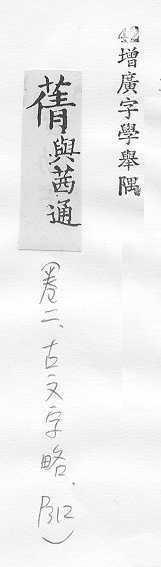 42增廣字學舉隅
蒨與茜通
(卷二、古文字略、P312)